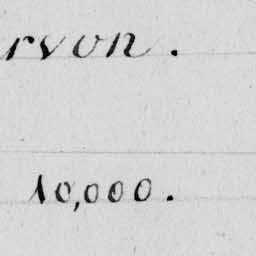 rvon.
10,000.